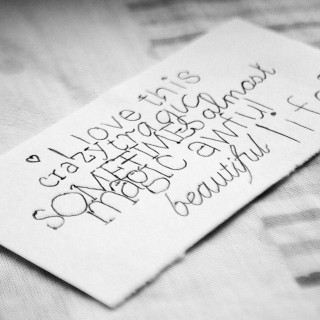 ♥ I love this
crazy tragic
SOMETIMES almost
magic awful
beautiful life